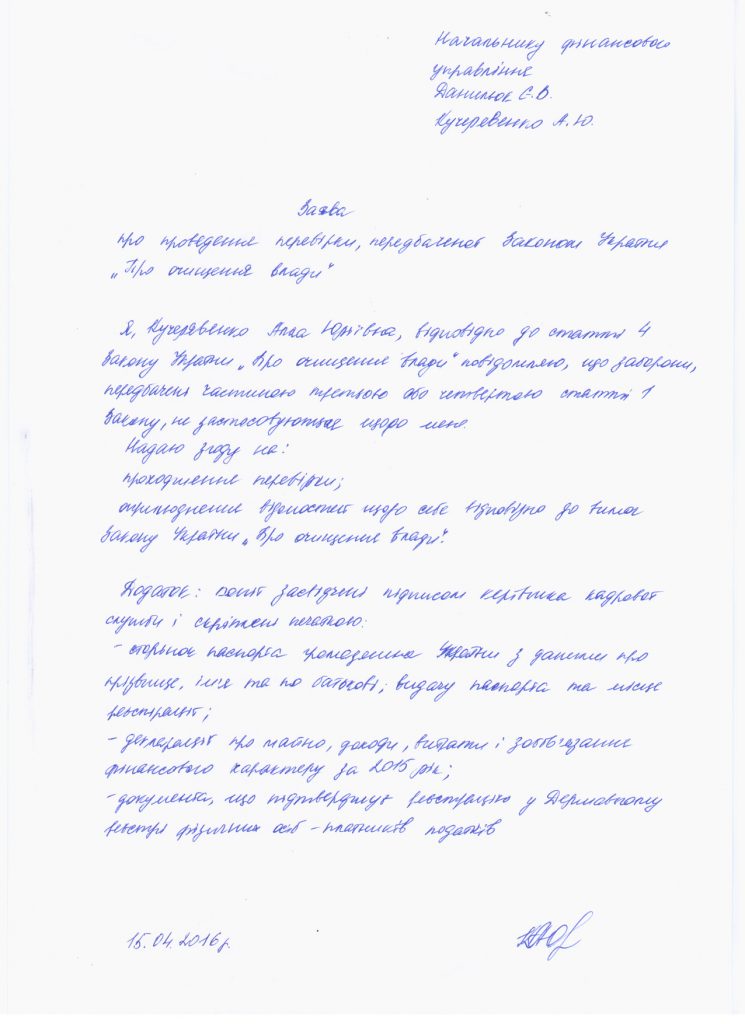 Начальнику фінансового
управління
Данилюк Є.В.
Кучеревенко А.Ю.
Заява
про проведення перевірки, передбаченої Законом України
„Про очищення влади"
Я, Кучерявенко Алла Юріївна, відповідно до статті 4
Закону України „Про очищення влади" повідомляю, що заборони,
передбачені частиною третьою або четвертою статті 1
Закону, не застосовуються щодо мене.
Надаю згоду на:
проходження перевірки;
оприлюднення відомостей щодо себе відповідно до вимог
Закону України „Про очищення влади".
Додаток: копії засвідчені підписом керівника кадрової
служби і скріплені печаткою:
- сторінок паспорта громадянина України з даними про
прізвище, ім'я та по батькові; видачу паспорта та місце
реєстрації;
- декларації про майно, доходи, витрати і зобов'язання
фінансового характеру за 2015 рік;
- документа, що підтверджує реєстрацію у Державному
реєстрі фізичних осіб - платників податків
15.04.2016 р.